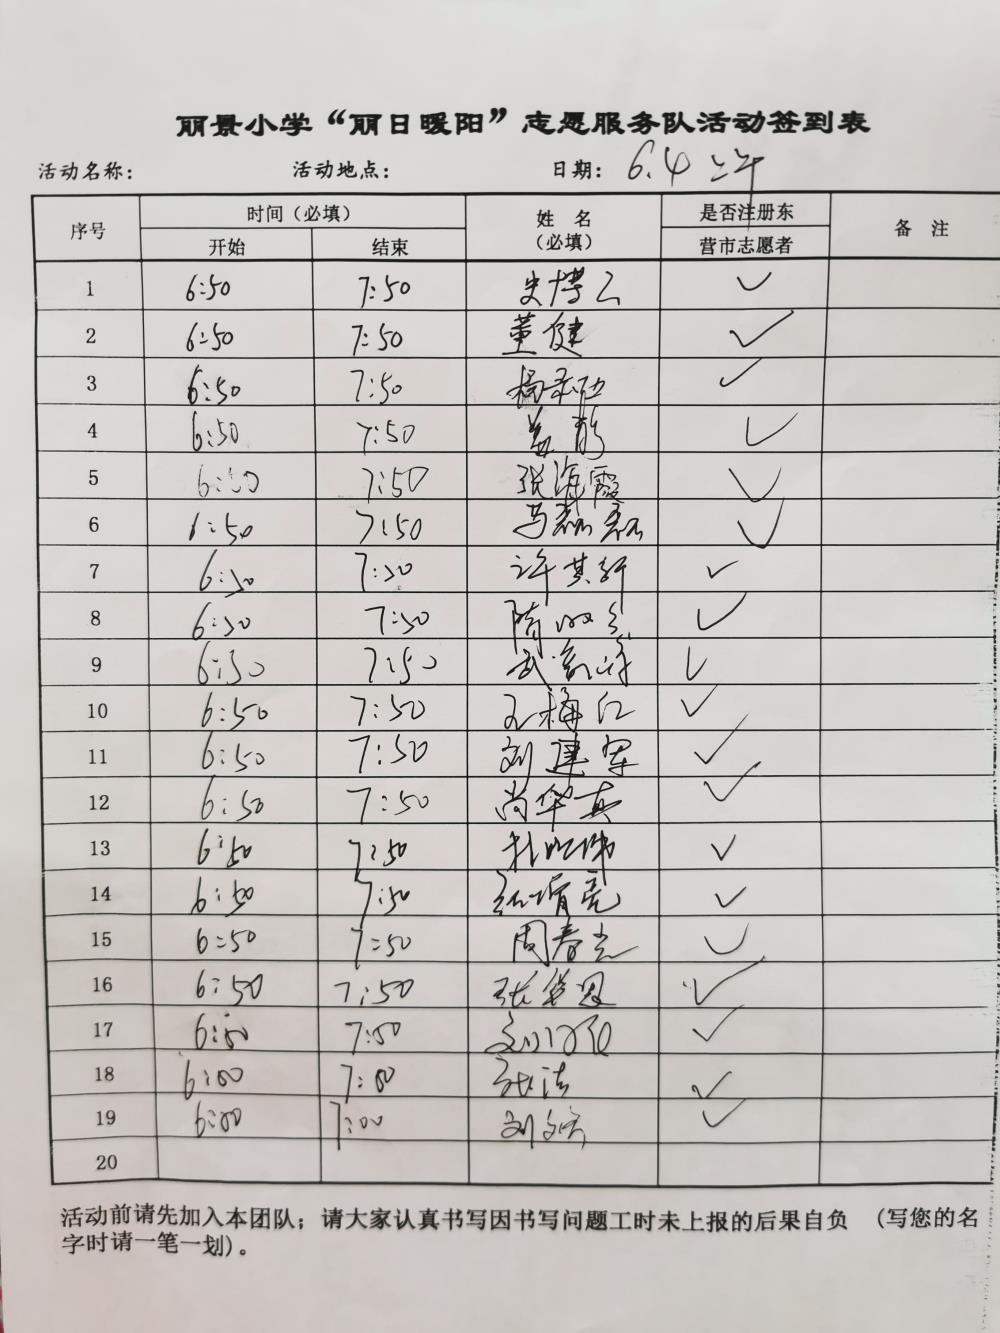 丽景小学“丽日暖阳”志愿服务队活动签到表
活动名称： 活动地点： 日期：6.4 上午
序号 时间（必填） 姓 名（必填） 是否注册东营市志愿者 备 注
开始 结束
1 6:50 7:50 史博云 ✓
2 6:50 7:50 董健 ✓
3 6:50 7:50 ✓
4 6:50 7:50 ✓
5 7:50 张海霞 ✓
6 6:50 7:50 马磊磊 ✓
7 6:50 7:50 许其轩 ✓
8 6:50 7:50 ✓
9 6:50 7:50 ✓
10 6:50 7:50 王梅红 ✓
11 6:50 7:50 刘建军 ✓
12 6:50 7:50 尚华真 ✓
13 6:50 7:50 ✓
14 6:50 7:50 ✓
15 6:50 7:50 周春光 ✓
16 6:50 7:50 ✓
17 ✓
18 ✓
19 7:00 ✓
20
活动前请先加入本团队；请大家认真书写因书写问题工时未上报的后果自负 （写您的名
字时请一笔一划）。